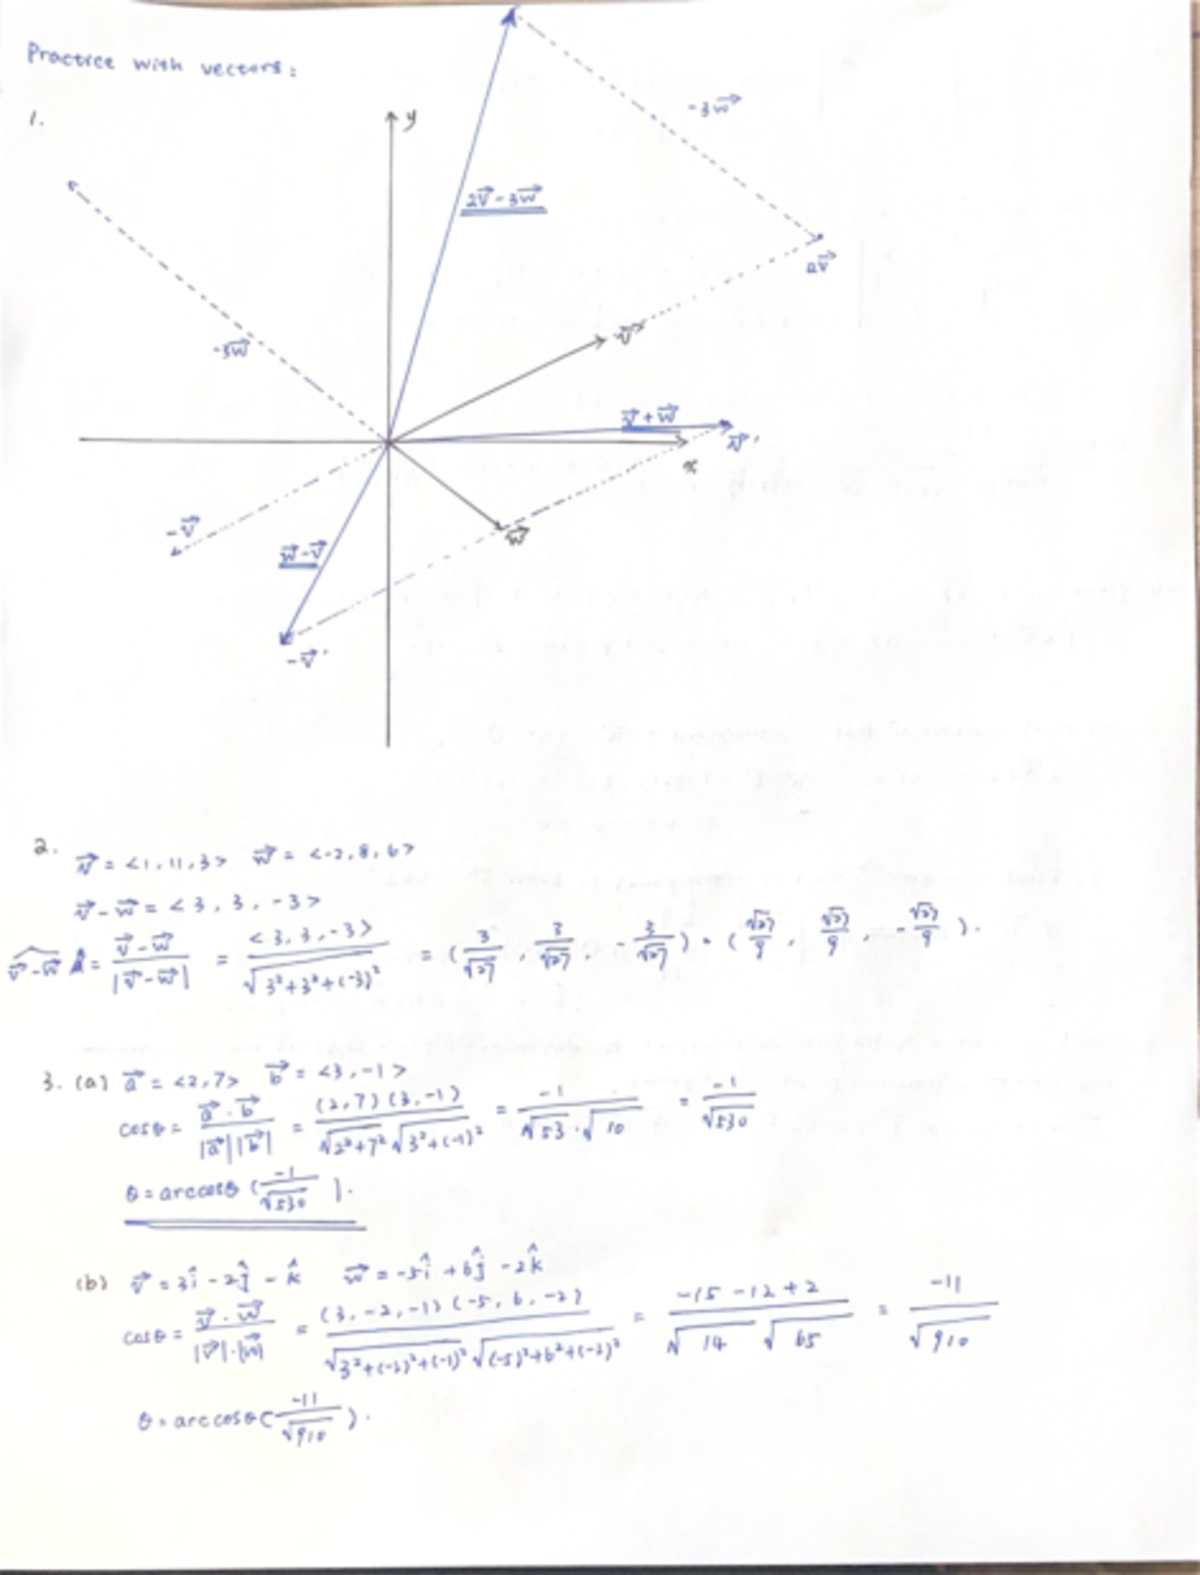 Practice with vectors:
1.
y
-3w⃗
2v⃗ - 3w⃗
2v⃗
-3w⃗
v⃗
v⃗ + w⃗
v⃗'
x
-v⃗
w⃗
w⃗ - v⃗
-v⃗'
2.
v⃗ = <1, 11, 3> w⃗ = <-2, 8, 6>
v⃗ - w⃗ = <3, 3, -3>
v⃗-w⃗ = (v⃗ - w⃗)/|v⃗ - w⃗| = <3, 3, -3>/√(3²+3²+(-3)²) = (3/√27, 3/√27, -3/√27) = (√27/9, √27/9, -√27/9).
3. (a) a⃗ = <2, 7> b⃗ = <3, -1>
cosθ = (a⃗ · b⃗)/(|a⃗||b⃗|) = (2,7)(3,-1)/(√(2²+7²) √(3²+(-1)²)) = -1/(√53 · √10) = -1/√530
θ = arccosθ (-1/√530).
(b) v⃗ = 3î - 2ĵ - k̂ w⃗ = -5î + 6ĵ - 2k̂
cosθ = (v⃗ · w⃗)/(|v⃗|·|w⃗|) = (3, -2, -1)(-5, 6, -2)/(√(3²+(-2)²+(-1)²) √((-5)²+6²+(-2)²)) = (-15 -12 +2)/(√14 √65) = -11/√910
θ = arccosθ (-11/√910).